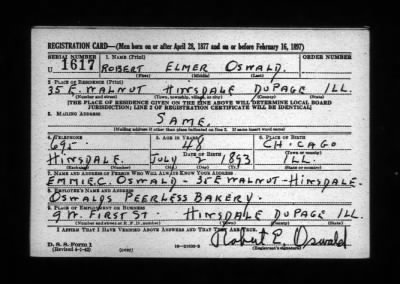 REGISTRATION CARD—(Men born on or after April 28, 1877 and on or before February 16, 1897)
SERIAL NUMBER 1. NAME (Print) ORDER NUMBER
U 1617 ROBERT ELMER OSWALD.
(First) (Middle) (Last)
2. PLACE OF RESIDENCE (Print)
35 E. WALNUT HINSDALE DUPAGE ILL.
(Number and street) (Town, township, village, or city) (County) (State)
[THE PLACE OF RESIDENCE GIVEN ON THE LINE ABOVE WILL DETERMINE LOCAL BOARD
JURISDICTION; LINE 2 OF REGISTRATION CERTIFICATE WILL BE IDENTICAL]
3. MAILING ADDRESS
SAME.
[Mailing address if other than place indicated on line 2. If same insert word same]
4. TELEPHONE 5. AGE IN YEARS 6. PLACE OF BIRTH
695 48 CHICAGO
DATE OF BIRTH (Town or county)
HINSDALE. JULY 2 1893 ILL.
(Exchange) (Number) (Mo.) (Day) (Yr.) (State or country)
7. NAME AND ADDRESS OF PERSON WHO WILL ALWAYS KNOW YOUR ADDRESS
EMMIE C. OSWALD 35 E WALNUT-HINSDALE.
8. EMPLOYER'S NAME AND ADDRESS
OSWALDS PEERLESS BAKERY.
9. PLACE OF EMPLOYMENT OR BUSINESS
9 W. FIRST ST. HINSDALE DUPAGE ILL.
(Number and street or R. F. D. number) (Town) (County) (State)
I AFFIRM THAT I HAVE VERIFIED ABOVE ANSWERS AND THAT THEY ARE TRUE.
D. S. S. Form 1
(Revised 4-1-42) (over) Robert E. Oswald
(Registrant's signature)